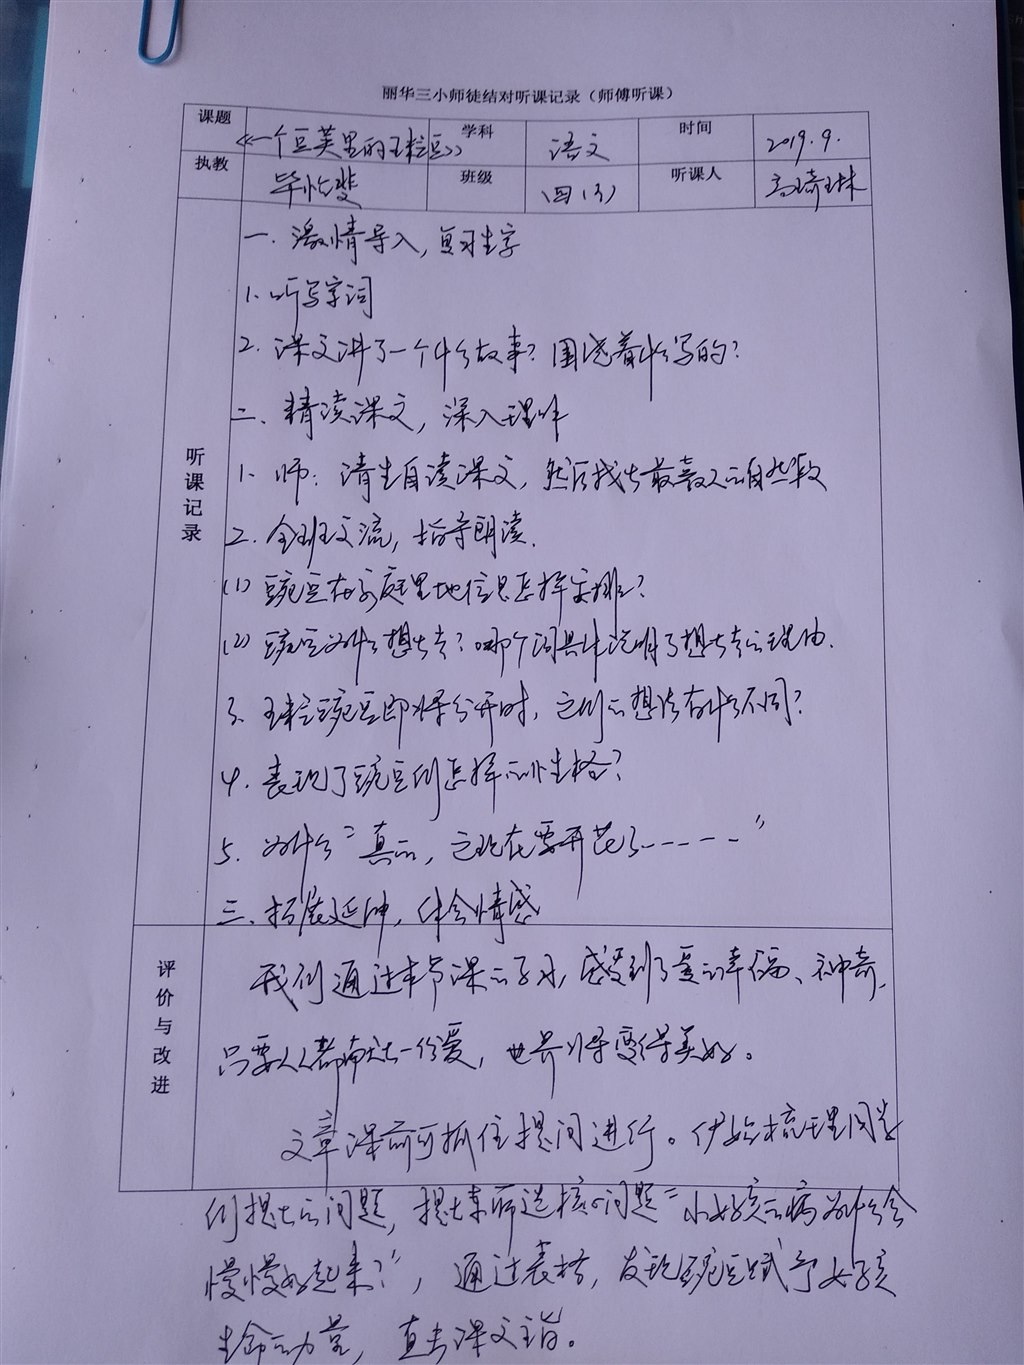 丽华三小师徒结对听课记录（师傅听课）
课题 《一个豆荚里的五粒豆》 学科 语文 时间 2019.9.
执教 毕怡斐 班级 四（3） 听课人 高琦琳
听课记录
一. 激情导入，复习生字
1. 听写字词
2. 课文讲了一个什么故事？围绕着什么写的？
二、精读课文，深入理解
1. 师：请生自读课文，然后找出最喜欢的自然段
2. 全班交流，指导朗读.
(1) 豌豆在家庭里地位是怎样安排？
(2) 豌豆为什么想出去？哪个词具体说明了想出去的理由.
3. 五粒豌豆即将分开时，它们的想法有什么不同？
4. 表现了豌豆们怎样的性格？
5. 为什么“真的，它现在要开花了-----”
三、拓展延伸，体会情感
评价与改进
我们通过本节课的学习，感受到了爱的幸福、神奇，
只要人人都献出一份爱，世界将变得美好。
文章课前可抓住提问进行。伊始梳理同学
们提出的问题，提出某师选核心问题“小女孩的病为什么会
慢慢好起来？”，通过表格，发现豌豆赋予女孩
生命的力量，直击课文主旨。